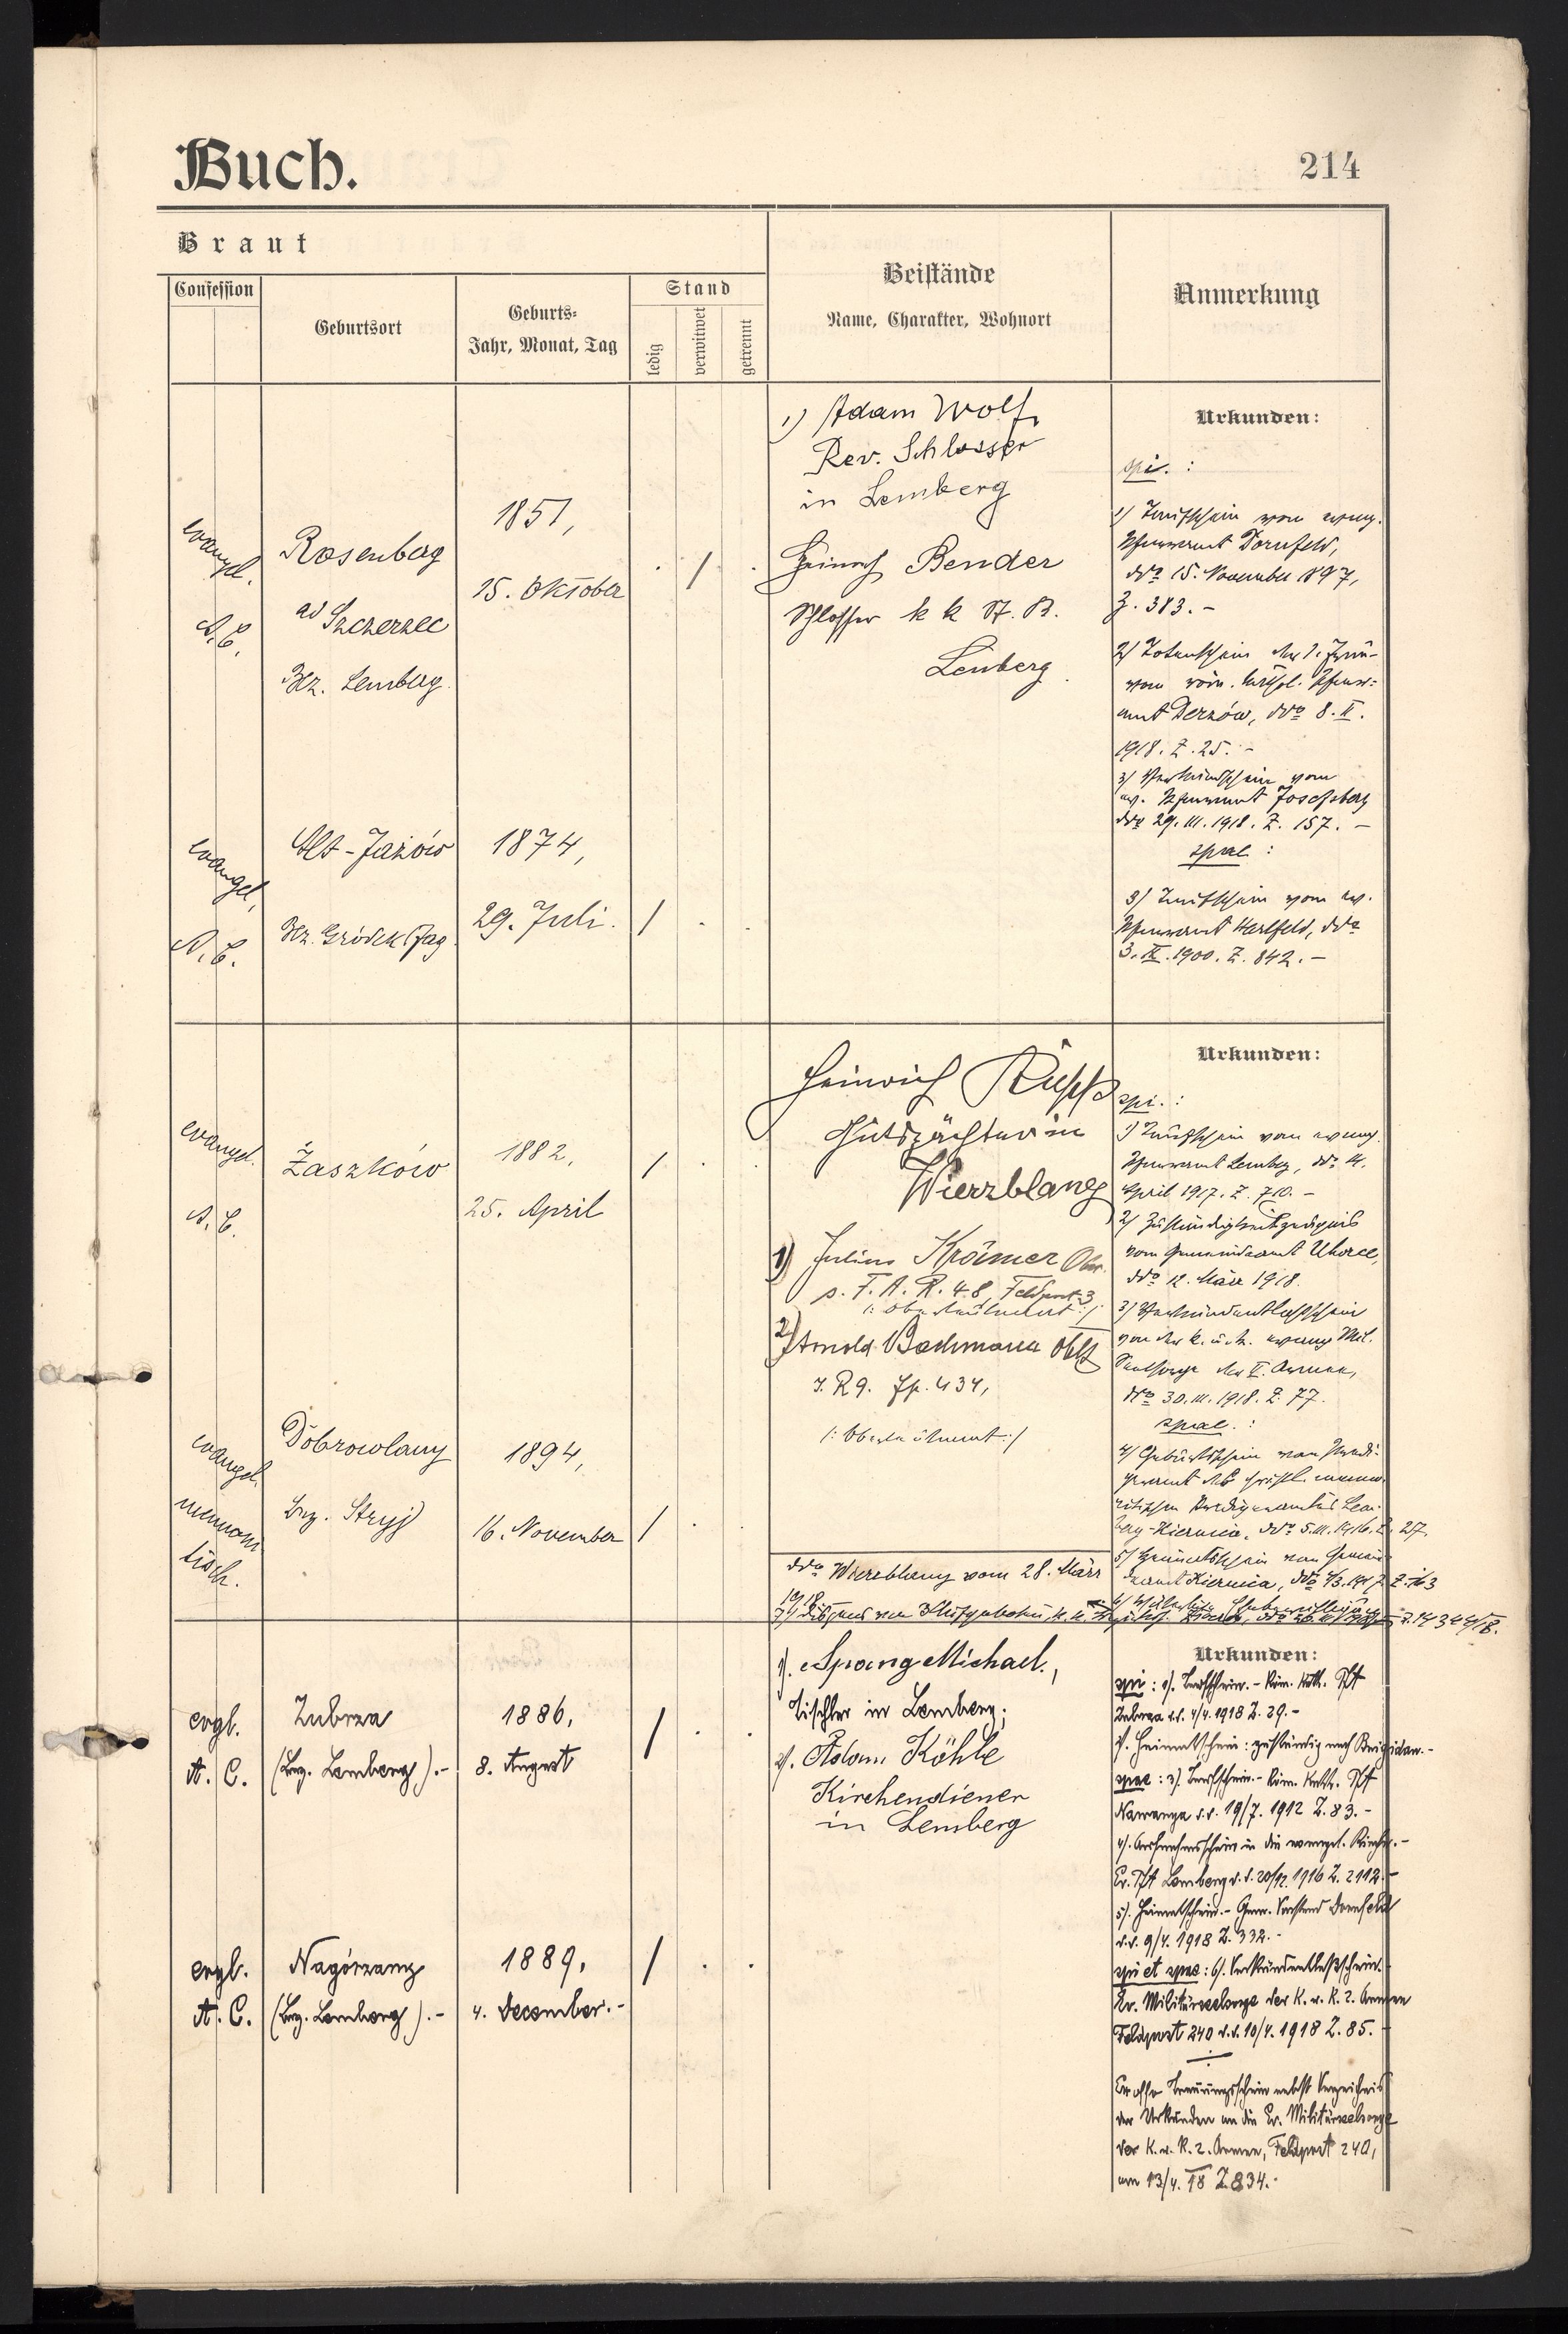 Buch.
214
Braut
Confession
Geburtsort
Geburts-
Jahr, Monat, Tag
Stand
ledig
verwitwet
getrennt
Beistände
Name, Charakter, Wohnort
Anmerkung
evangel.
A.C.
Rosenberg
ad Szczerzec
Bez. Lemberg
1851,
15. Oktober
1) Adam Wolf,
Rev. Schlosser
in Lemberg
Heinrich Bender
Schlosser k k St. B.
Lemberg
Urkunden:
spi. :
1) Taufschein vom evang.
Pfarramt Dornfeld,
ddo 15. November 1897,
Z. 383. -
2) Totenschein der 1. Frau
vom röm. kathol. Pfarr-
amt Derzów, ddo 8. II.
1918. Z. 25. -
3) Verkündschein vom
ev. Pfarramt Josefsberg
ddo 29. III. 1918. Z. 157. -
spae :
3) Taufschein vom ev.
Pfarramt Hartfeld, ddo
3. IX. 1900. Z. 842. -
evangel.
A.C.
Alt-Jażów
Bez. Gródek Jag.
1874,
29. Juli.
evangel.
A.C.
Żaszków
1882,
25. April
Heinrich Rupp
Gutspächter in
Wierzblany
1) Julius Krämer
s. F. A. R. 48, Feldpost 3
/: Oberleutnant :/
2) Arnold Bachmann Oblt
I. R 9. Fp. 434,
/: Oberleutnant :/
Urkunden:
spi. :
1) Taufschein vom evang.
Pfarramt Lemberg, ddo 14.
April 1917. Z. 710. -
2) Zuständigkeitszeugnis
vom Gemeindeamt Uhorce,
ddo 12. März 1918.
3) Verkündentlaßschein
von der k. u. k. evang. Mil.
Seelsorge der II. Armee,
ddo 30. III. 1918. Z. 77.
spae. :
4) Geburtsschein vom Predi-
geramt der christl. menno-
nitischen Predigeramtes Lem-
berg-Kiernica, ddo 5. III. 1916. Z. 27.
5) Heimatschein vom Gemein-
deamt Kiernica, ddo
evangel.
mennoni
tisch.
Dobrowlany
Bez. Stryj
1894,
16. November
ddo Wierzblany vom 28. März
1918
evgl.
A. C.
Zubrza
(Bez. Lemberg).-
1886,
8. August
1). Spang Michael,
Tischler in Lemberg;
2). Adam Köhle
Kirchendiener
in Lemberg
Urkunden:
spi : 1). Taufschein.- Röm. kath. Pft
Zubrza v.d. 4/4. 1918 Z. 29.-
2). Heimatschein : zuständig nach Brigidau.-
spae : 3). Taufschein.- Röm. kath. Pft
Nawarya v.d. 19/7. 1912 Z. 83.-
4). Aufnahmsschein in die evangel. Kirche.-
Ev. Pft Lemberg v.d. 20/12. 1916 Z. 2112.-
5). Heimatschein.- Gem. Vorstand Dornfeld
v.d. 9/4. 1918 Z. 332.-
spi et spae : 6). Verkündentlaßschein.-
Ev. Militärseelsorge der K. u. K. 2. Armee
Feldpost 240 v.d. 10/4. 1918 Z. 85. -
evgl.
A. C.
Nagórzany
(Bez. Lemberg).-
1889,
4. December.-
Trauungsschein nebst Verzeichnis
der Urkunden an die Ev. Militärseelsorge
der K. u. K. 2. Armee, Feldpost 240,
am 13/4. 18 Z. 834.-